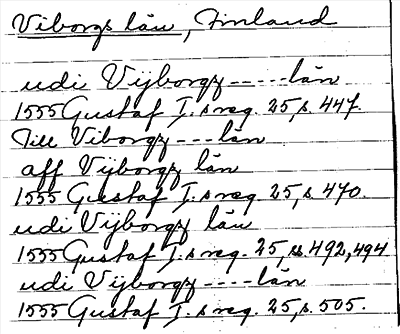 Viborgs län, Finland
udi Vijborgz-----län
1555 Gustaf I:s reg. 25, s. 447.
Till Viborgz---län
aff Vijborgz län
1555 Gustaf I:s reg. 25, s. 470.
udi Vijborgz län
1555 Gustaf I:s reg. 25, ss. 492, 494
udi Vijborgz----län
1555 Gustaf I:s reg. 25, s. 505.